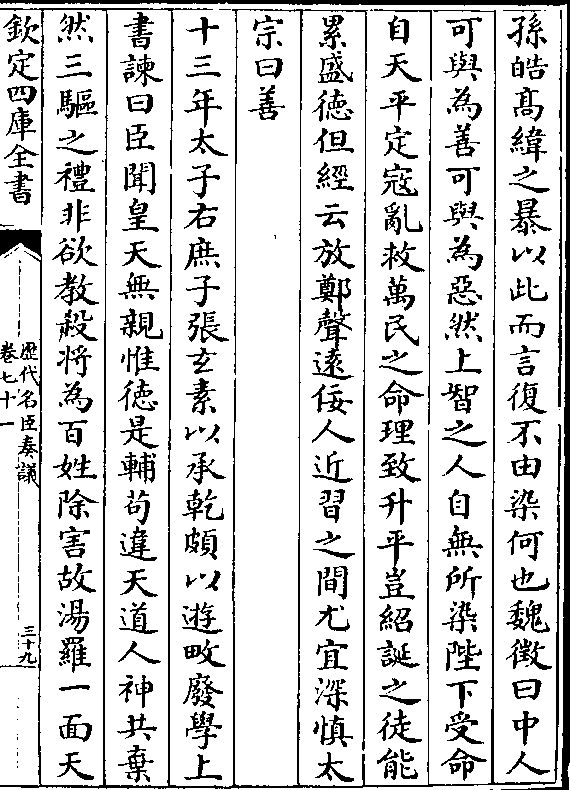 孫皓髙緯之暴以此而言復不由染何也魏徴曰中人
可與為善可與為惡然上智之人自無所染陛下受命
自天平定寇亂救萬民之命理致升平豈紹誕之徒能
累盛徳但經云放鄭聲逺佞人近習之間尤宜深慎太
宗曰善
十三年太子右庶子張玄素以承乾頗以遊畋廢學上
書諫曰臣聞皇天無親惟徳是輔苟違天道人神共棄
然三驅之禮非欲教殺將為百姓除害故湯羅一面天
欽定四庫全書
歴代名臣奏議
卷七十一
三十九